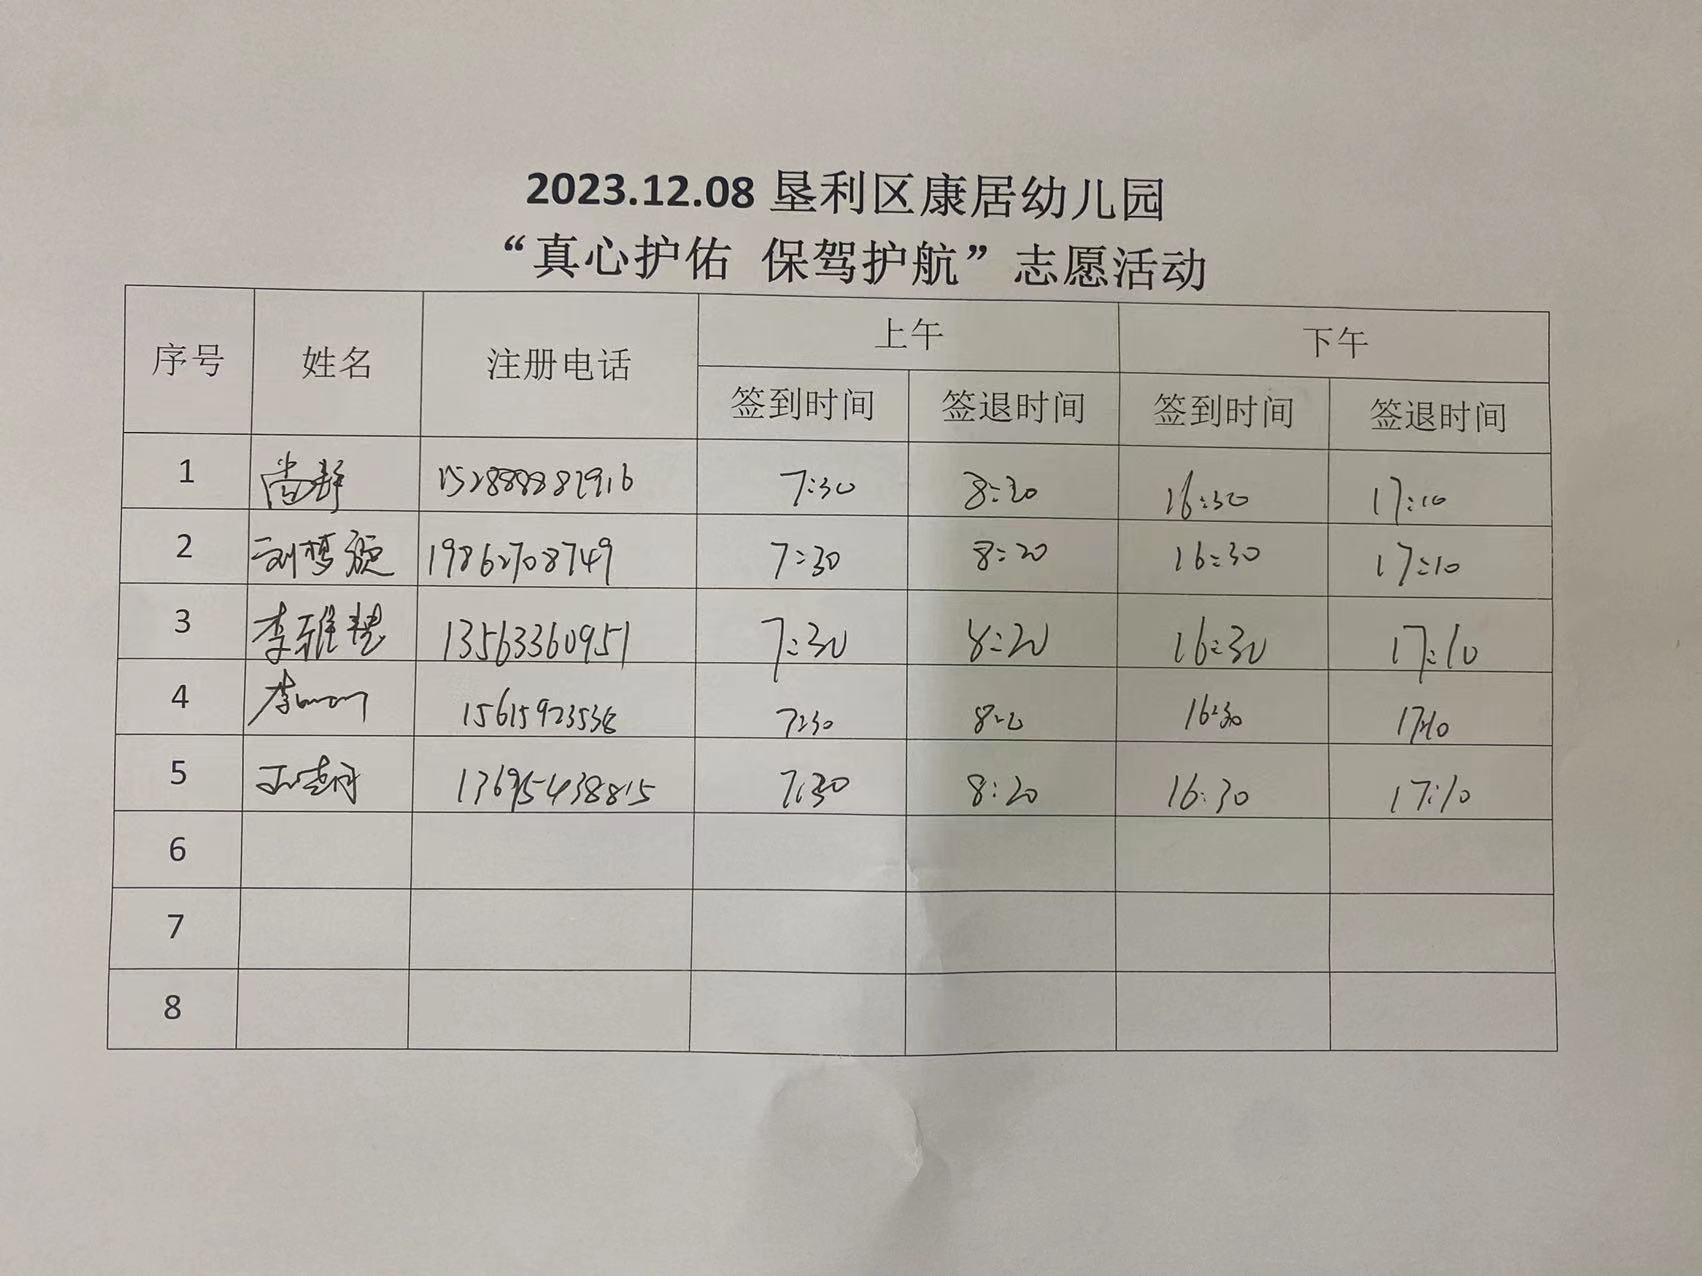 2023.12.08 垦利区康居幼儿园
“真心护佑 保驾护航”志愿活动
序号 姓名 注册电话 上午 下午
签到时间 签退时间 签到时间 签退时间
1 尚静 7:30 8:20 16:30 17:10
2 刘梦璇 19862708749 7:30 8:20 16:30 17:10
3 李雅慧 13563360951 7:30 8:20 16:30 17:10
4 李 15615923538 7:30 8:20 16:30 17:10
5 13695438815 7:30 8:20 16:30 17:10
6
7
8